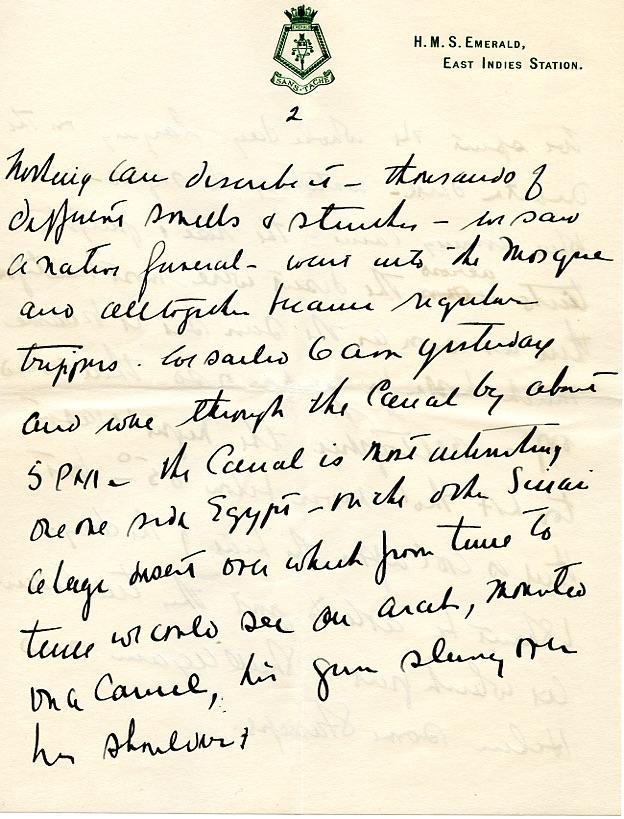 EMERALD
SANS-TACHE
H.M.S. EMERALD,
EAST INDIES STATION.
2
Nothing can describe it – thousands of
different smells & stenches – we saw
a native funeral – went into the Mosque
and alltogether became regular
trippers. We sailed 6 am yesterday
and were through the Canal by about
5 PM – the Canal is most interesting
one one side Egypt – on the other Sinai
a large desert over which from time to
time we could see an arab, mounted
on a Camel, his gun slung over
his shoulder &